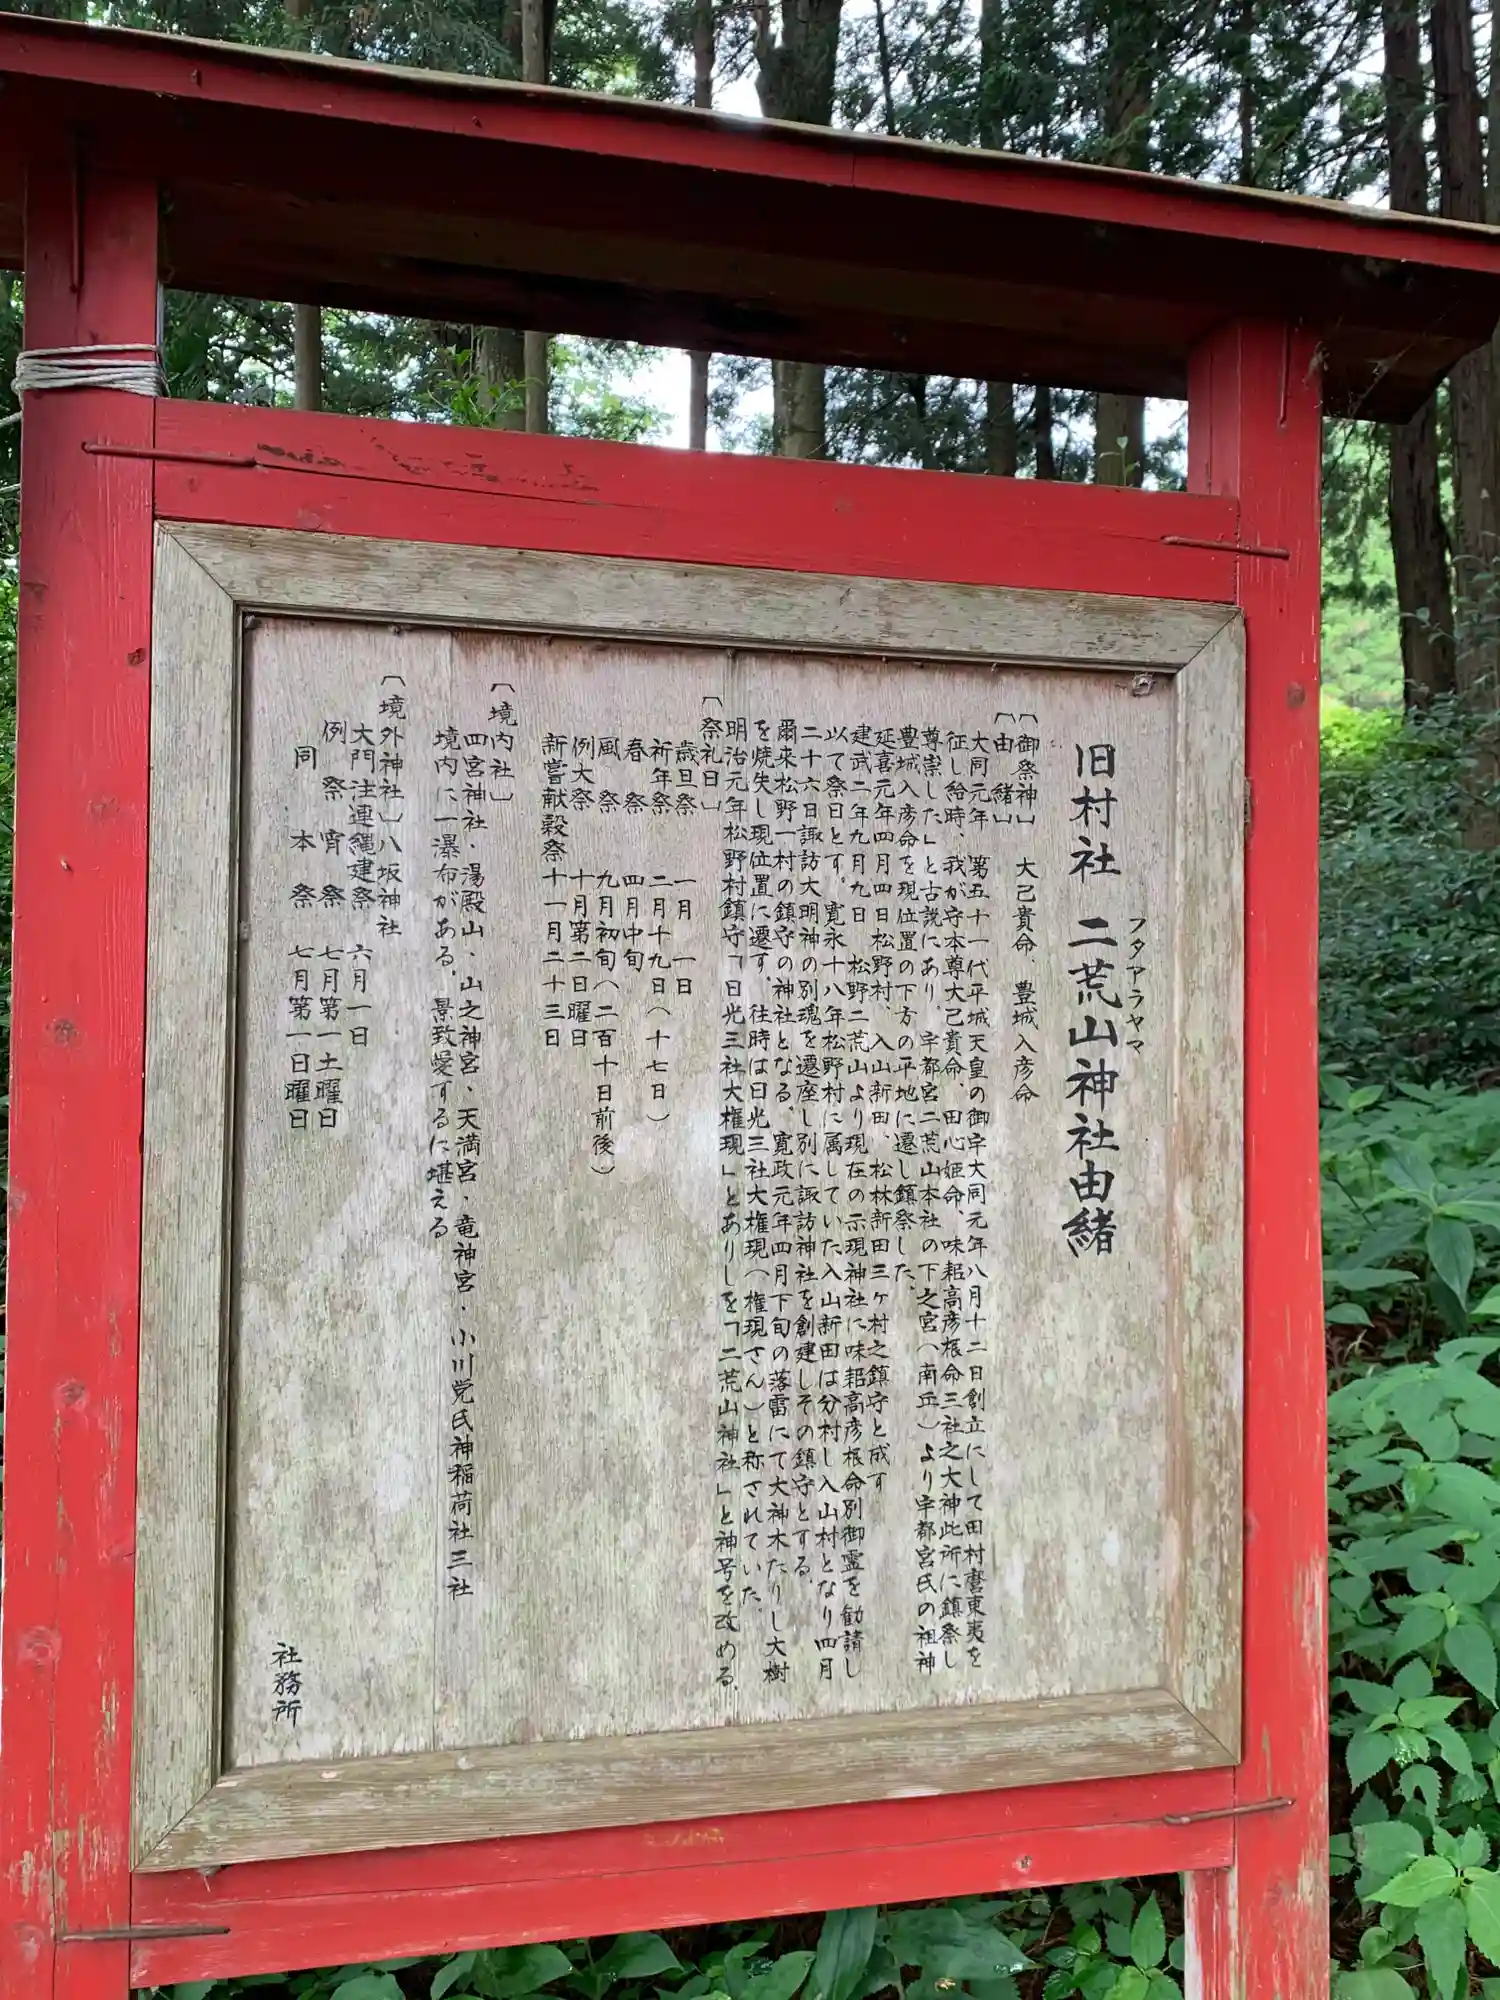 フタアラヤマ
旧村社 二荒山神社由緒
〔御祭神〕 大己貴命、豊城入彦命
〔由緒〕
大同元年 第五十一代平城天皇の御宇大同元年八月十二日創立にして田村麿東夷を
征し給時、我が守本尊大己貴命、田心姫命、味耜高彦根命三社之大神此所に鎮祭し
尊崇した」と古説にあり、宇都宮二荒山本社の下之宮(南丘)より宇都宮氏の祖神
豊城入彦命を現位置の下方の平地に遷し鎮祭した。
延喜元年四月四日松野村、入山新田、松林新田三ヶ村之鎮守と成す
建武二年九月九日 松野二荒山より現在の示現神社に味耜高彦根命別御霊を勧請し
以て祭日とす。寛永十八年松野村に属していた入山新田は分村し入山村となり四月
二十六日諏訪大明神の別魂を遷座し別に諏訪神社を創建しその鎮守とする。
爾来松野一村の鎮守の神社となる。寛政元年四月下旬の落雷にて大神木たりし大樹
を焼失し現位置に遷す。往時は日光三社大権現(権現さん)と称されていた。
明治元年松野村鎮守「日光三社大権現」とありしを「二荒山神社」と神号を改める。
〔祭礼日〕
歳旦祭 一月一日
祈年祭 二月十九日(十七日)
春祭 四月中旬
風祭 九月初旬(二百十日前後)
例大祭 十月第二日曜日
新嘗献穀祭 十一月二十三日
〔境内社〕
四宮神社・湯殿山・山之神宮・天満宮・竜神宮・小川党氏神稲荷社三社
境内に一瀑布がある。景致愛するに堪える
〔境外神社〕八坂神社
大門注連縄建祭 六月一日
例祭宵祭 七月第一土曜日
同本祭 七月第一日曜日
社務所